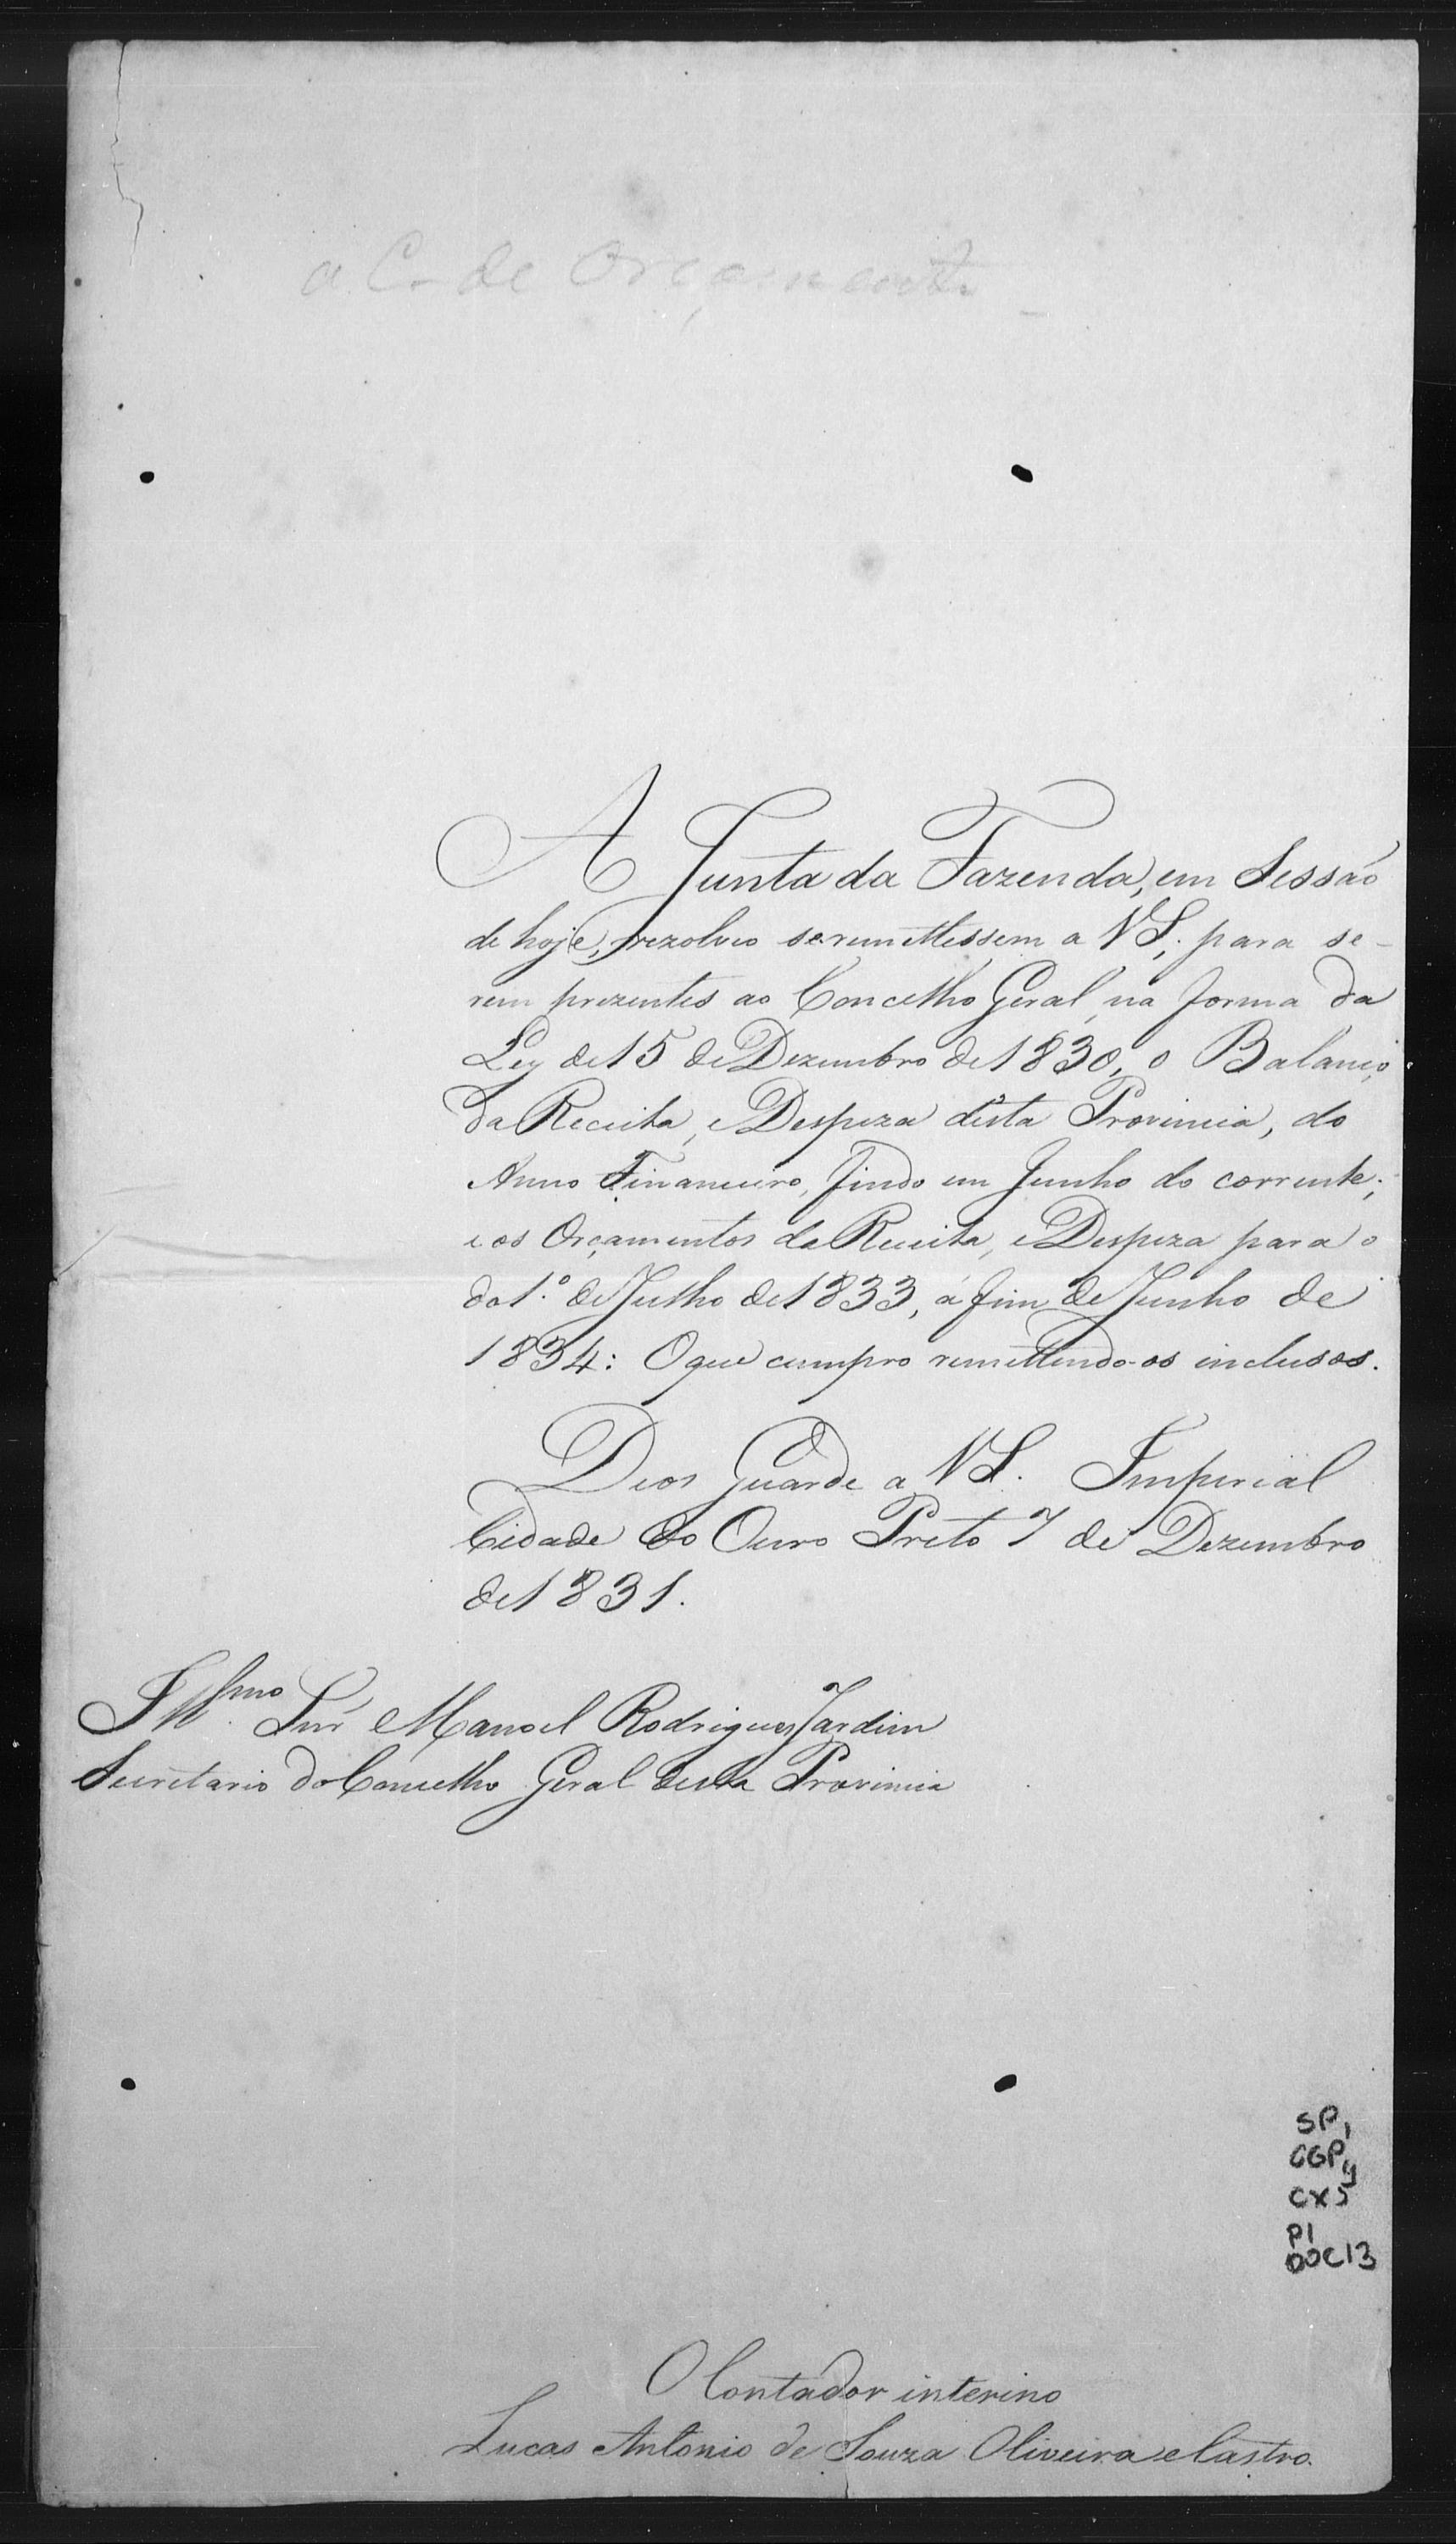 a C. de Orçamento
A Junta da Fazenda, em Sessão
de hoje, rezolveo se remettessem a VS., para se-
rem prezentes ao Concelho Geral, na forma da
Ley de 15 de Dezembro de 1830, o Balanço
da Receita, e Despeza desta Provincia, do
Anno Financeiro, findo em Junho do corrente;
e os Orçamentos da Receita, e Despeza para o
do 1.º de Julho de 1833, á fim de Junho de
1834: O que cumpro remettendo-os inclusos.
Deos Guarde a VS. Imperial
Cidade do Ouro Preto 7 de Dezembro
de 1831.
Illmo. Snr Manoel Rodrigues Jardim
Secretario do Concelho Geral desta Provincia
SP,
CGP,,
CX5
P1
DOC13
O Contador interino
Lucas Antonio de Souza Oliveira e Castro.